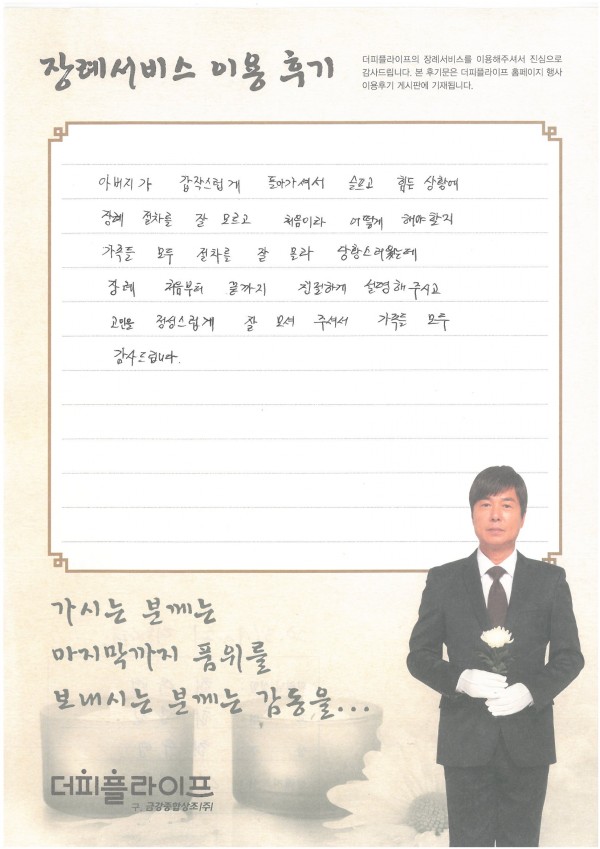 장례서비스 이용 후기
더피플라이프의 장례서비스를 이용해주셔서 진심으로
감사드립니다. 본 후기문은 더피플라이프 홈페이지 행사
이용후기 게시판에 기재됩니다.
아버지가 갑작스럽게 돌아가셔서 슬프고 힘든 상황에
장례 절차를 잘 모르고 처음이라 어떻게 해야할지
가족들 모두 절차를 잘 몰라 당황스러웠는데
장례 처음부터 끝까지 친절하게 설명해 주시고
고인을 정성스럽게 잘 모셔 주셔서 가족들 모두
감사드립니다.
가시는 분께는
마지막까지 품위를
보내시는 분께는 감동을...
더피플라이프
구. 금강종합상조(주)